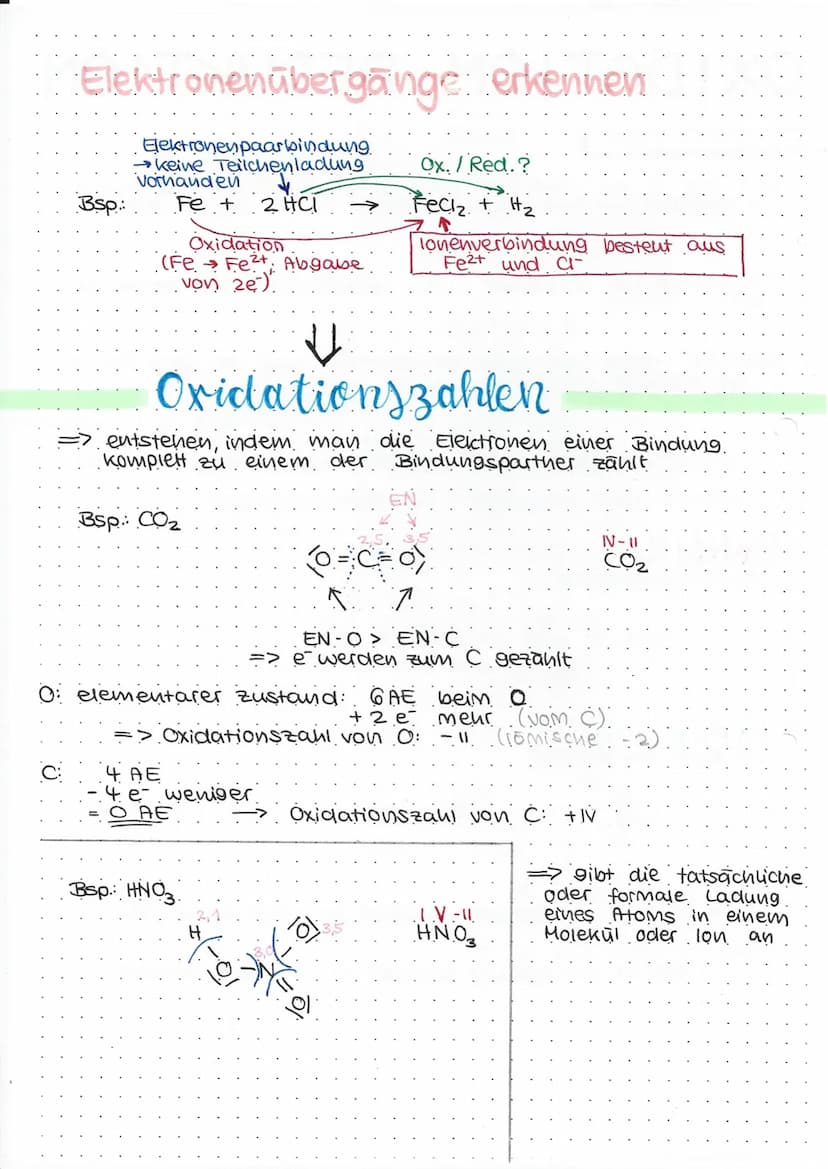 Elektronenübergänge erkennen
Elektronenpaarbindung
→ keine Teilchenladung
vorhanden
Ox. / Red.?
Bsp.: Fe + 2 HCl → FeCl₂ + H₂
Oxidation
(Fe → Fe²⁺, Abgabe
von 2e⁻)
Ionenverbindung besteht aus
Fe²⁺ und Cl⁻
⇓
Oxidationszahlen
=> entstehen, indem man die Elektronen einer Bindung
komplett zu einem der Bindungspartner zählt
EN
Bsp.: CO₂
2,5 3,5
IV -II
⟨O = C = O⟩
CO₂
EN-O > EN-C
=> e⁻ werden zum C gezählt
O: elementarer Zustand: 6 AE beim O
+ 2 e⁻ mehr (vom C)
=> Oxidationszahl von O: -II (römische -2)
C: 4 AE
- 4 e⁻ weniger
= 0 AE → Oxidationszahl von C: +IV
Bsp.: HNO₃
2,1
H
O
3,5
3,0
O - N
O
I V -II
HNO₃
=> gibt die tatsächliche
oder formale Ladung
eines Atoms in einem
Molekül oder Ion an